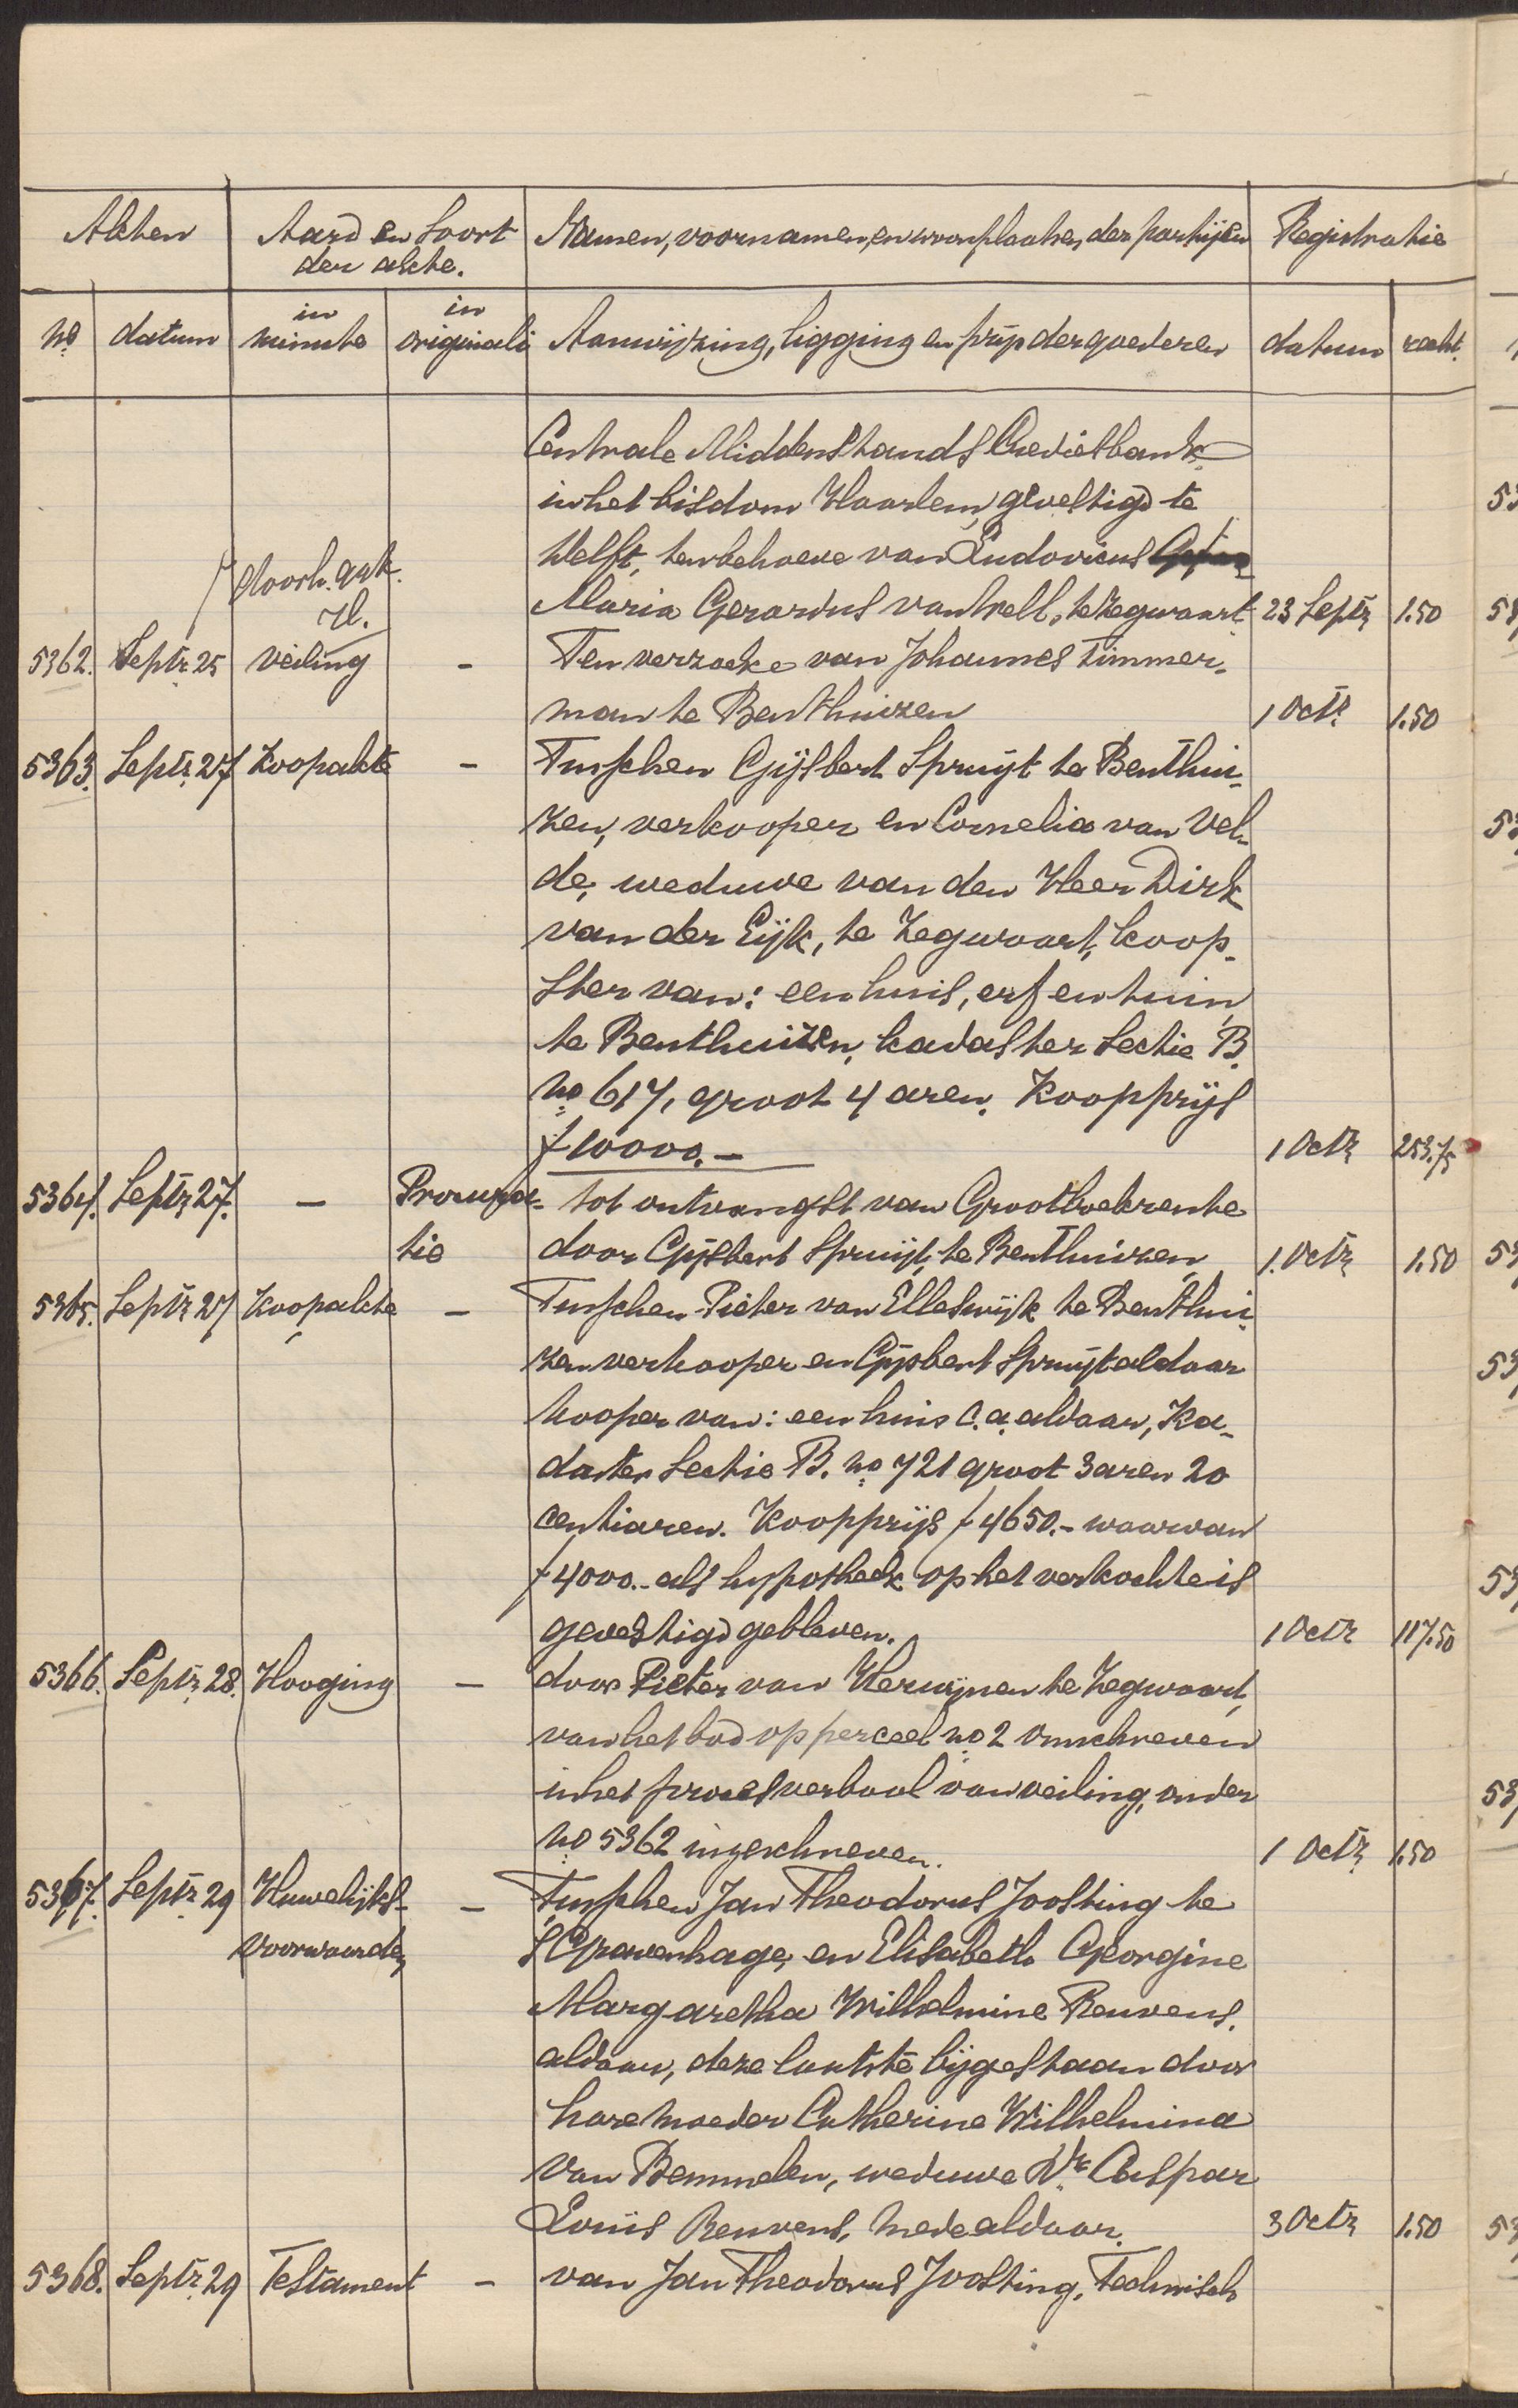 Akten Aard en Soort Namen, voornamen, en woonplaatsen der partijen Registratie
der akte.
No datum in minute in originali Aanwijzing, ligging en prijs der goederen datum recht.
Centrale Middenstands Credietbank
in het bisdom Haarlem, gevestigd te
Delft, ten behoeve van Ludovicus
doorh. get.
Maria Gerardus van , te Zegwaart 23 Septr 1.50
H.
5362. Septr. 25 veiling - Ten verzoeke van Johannes Timmer-
man te Benthuizen 1 Octr. 1.50
5363. Septr. 27 Koopakte - Tusschen Gijsbert Spruijt te Benthui-
zen, verkooper en Cornelia van Vel-
de, weduwe van den Heer Dirk
van der Eijk, te Zegwaart, koop-
ster van: een huis, erf en tuin,
te Benthuizen, kadaster Sectie B.
No 617, groot 4 aren. Koopprijs
f 10000.- 1 Octr 253.75
5364. Septr 27. - Procura- tot ontvangst van Grootboekrente
tie door Gijsbert Spruijt, te Benthuizen 1. Octr 1.50
5365. Septr 27 Koopakte - Tusschen Pieter van Elleswijk te Benthui-
zen verkooper en Gijsbert Spruijt aldaar
kooper van: een huis c.a. aldaar, Ka-
daster Sectie B. No 721 groot 3 aren 20
centiaren. Koopprijs f 4650.- waarvan
f 4000.- als hypotheek op het verkochte is
gevestigd gebleven. 1 Octr 117.50
5366. Septr. 28. Hooging - door Pieter van Herwijnen te Zegwaart,
van het bod op perceel No 2 omschreven
in het proces verbaal van veiling, onder
No 5362 ingeschreven. 1 Octr 1.50
5367. Septr. 29 Huwelijks- - Tusschen Jan Theodorus Joosting te
voorwaarden 's Gravenhage, en Elisabeth Georgine
Margaretha Wilhelmine Reuvens.
aldaar, deze laatste bijgestaan door
hare moeder Catherine Wilhelmina
van Bemmelen, weduwe Dr. Caspar
Louis Reuvens, mede aldaar. 3 Octr 1.50
5368. Septr. 29 Testament - van Jan Theodorus Joosting, Technisch